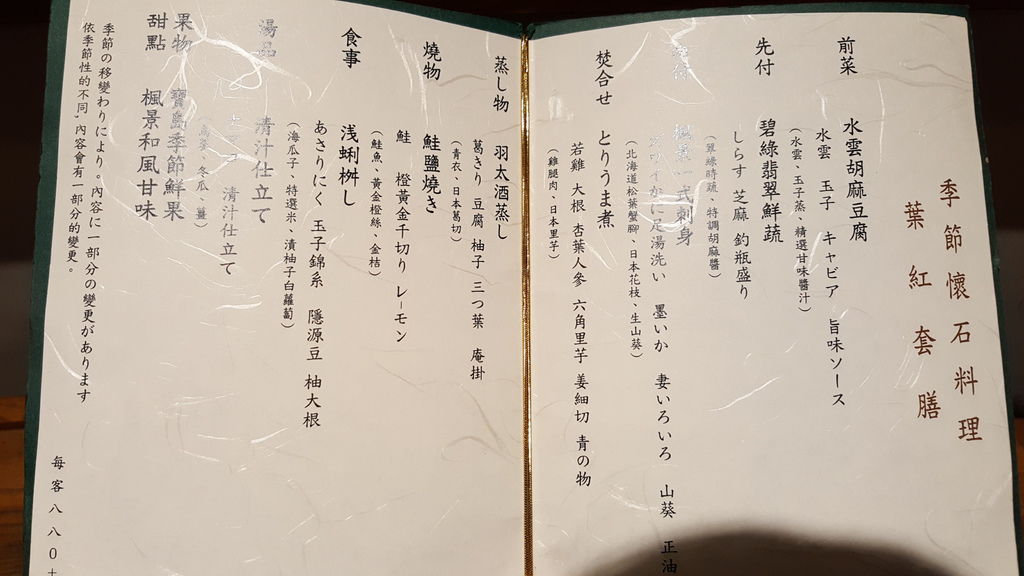 季節懷石料理
葉紅套膳
前菜 水雲胡麻豆腐
水雲 玉子 キャビア 旨味ソース
(水雲、玉子蒸、精選甘味醬汁)
先付 碧綠翡翠鮮蔬
しらす 芝麻 釣瓶盛り
(翠綠時蔬、特調胡麻醬)
一式刺身
ズワイかに足湯洗い 墨いか 妻いろいろ 山葵 正油
(北海道松葉蟹腳、日本花枝、生山葵)
焚合せ とりうま煮
若雞 大根 杏葉人參 六角里芋 姜細切 青の物
(雞腿肉、日本里芋)
蒸し物 羽太酒蒸し
葛きり 豆腐 柚子 三つ葉 庵掛
(青衣、日本葛切)
燒物 鮭鹽燒き
鮭 橙黃金千切り レーモン
(鮭魚、黃金橙絲、金桔)
食事 浅蜊桝し
あさりにく 玉子錦糸 隱源豆 柚大根
(海瓜子、特選米、漬柚子白蘿蔔)
湯品 清汁仕立て
清汁仕立て
冬瓜、薑)
果物 寶島季節鮮果
甜點 楓景和風甘味
季節の移變わりにより。內容に一部分の變更があります
依季節性的不同,內容會有一部分的變更。
每客八八0+